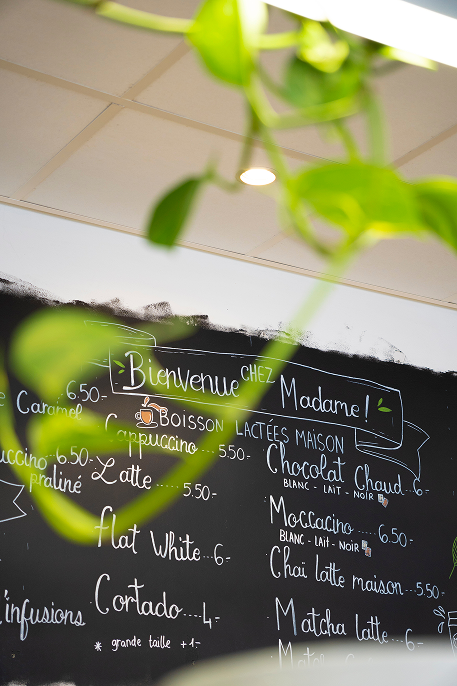 Bienvenue CHEZ Madame!
BOISSON LACTÉES MAISON
6.50-
Caramel
6.50-
praliné
infusions
Cappuccino....5.50-
Latte......5.50-
Flat White...6-
Cortado....4-
* grande taille +1-
Chocolat Chaud..6-
BLANC - LAIT - NOIR
Moccacino....6.50-
BLANC - Lait - NOIR
Chai latte maison...5.50-
Matcha latte..6-